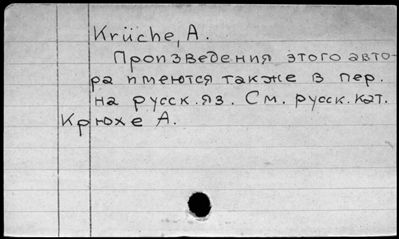 Krüche, A.
Произведения этого авто-
ра имеются также в пер.
на русск. яз. См. русск. кат.
Крюхе А.